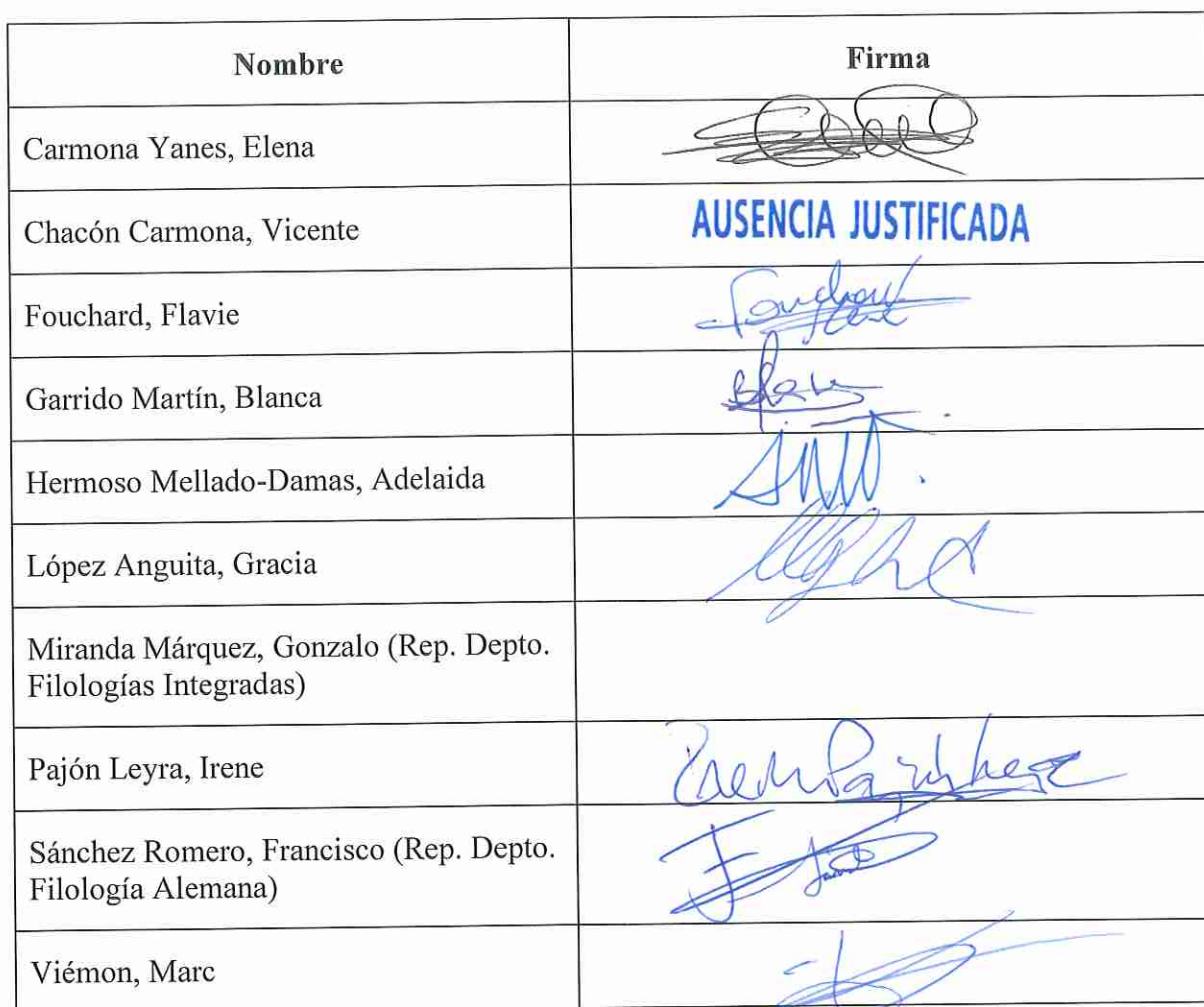 Nombre Firma
Carmona Yanes, Elena
Chacón Carmona, Vicente AUSENCIA JUSTIFICADA
Fouchard, Flavie
Garrido Martín, Blanca
Hermoso Mellado-Damas, Adelaida
López Anguita, Gracia
Miranda Márquez, Gonzalo (Rep. Depto.
Filologías Integradas)
Pajón Leyra, Irene
Sánchez Romero, Francisco (Rep. Depto.
Filología Alemana)
Viémon, Marc